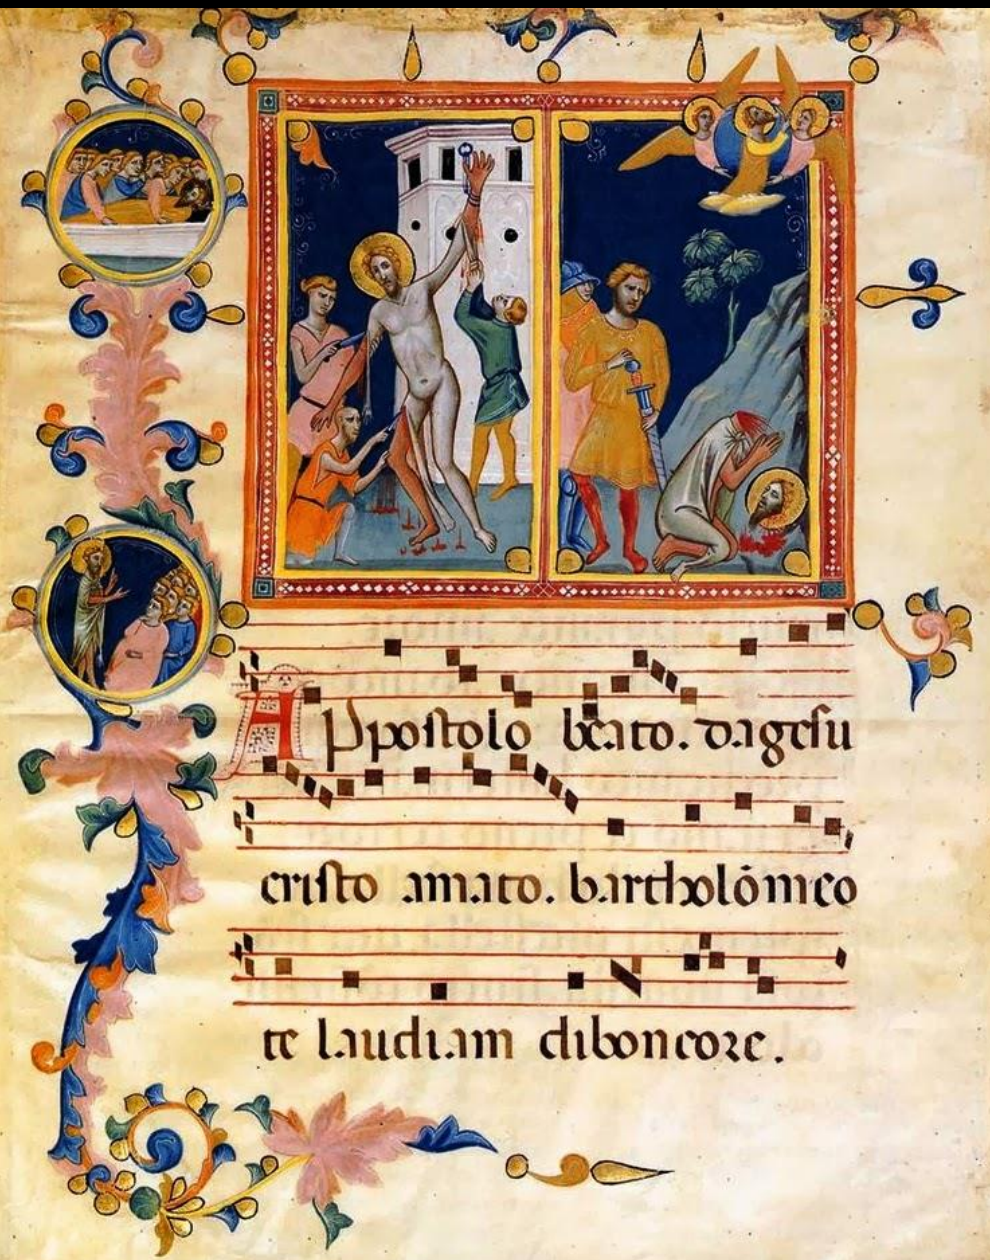 APpostolo beato. dagesu
cristo amato. bartholōmeo
te laudiam diboncore.